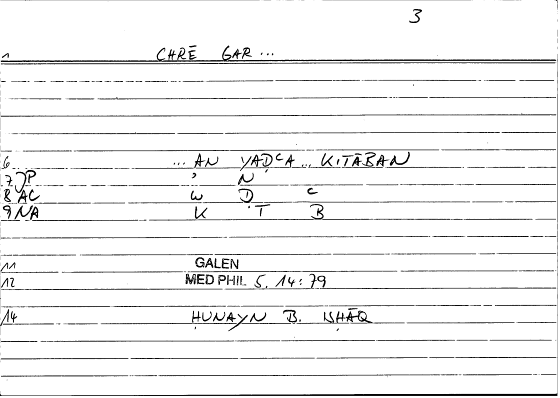 3
1 CHRĒ GAR ...
6 ... AN YAḌCA ... KITĀBAN
7 JP ' N
8 AC W Ḍ C
9 NA K T B
11 GALEN
12 MED PHIL 5, 14:79
14 ḤUNAYN B. ISḤĀQ